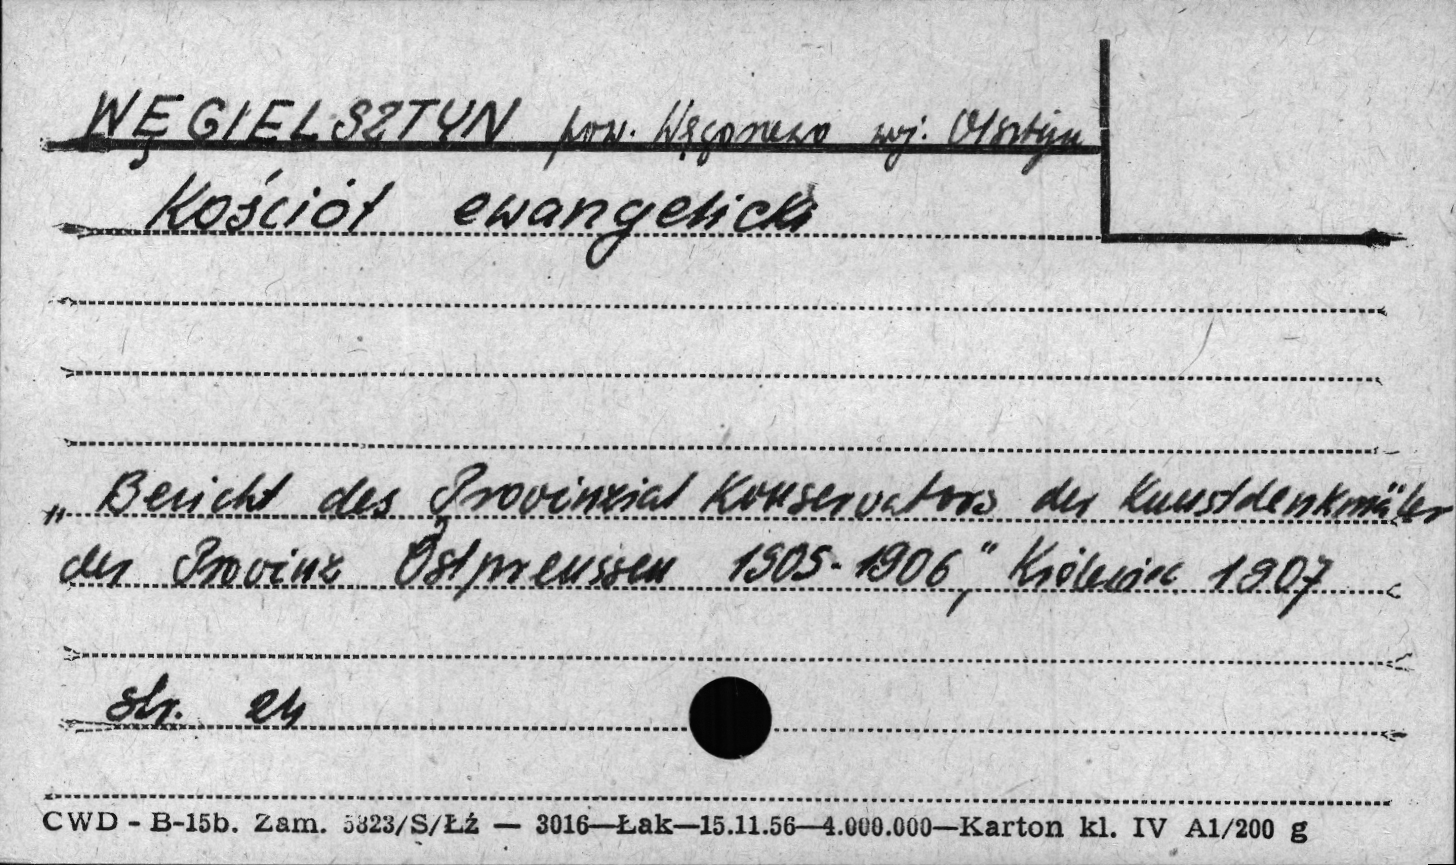 WĘGIELSZTYN pow. Węgorzewo woj. Olsztyn
Kościół ewangelicki
„Bericht des Provinzial Konservators der Kunstdenkmäler
der Provinz Ostpreussen 1905-1906," Królewiec 1907
str. 24
CWD - B-15b. Zam. 5823/S/Łź — 3016—Łak—15.11.56—4.000.000—Karton kl. IV A1/200 g